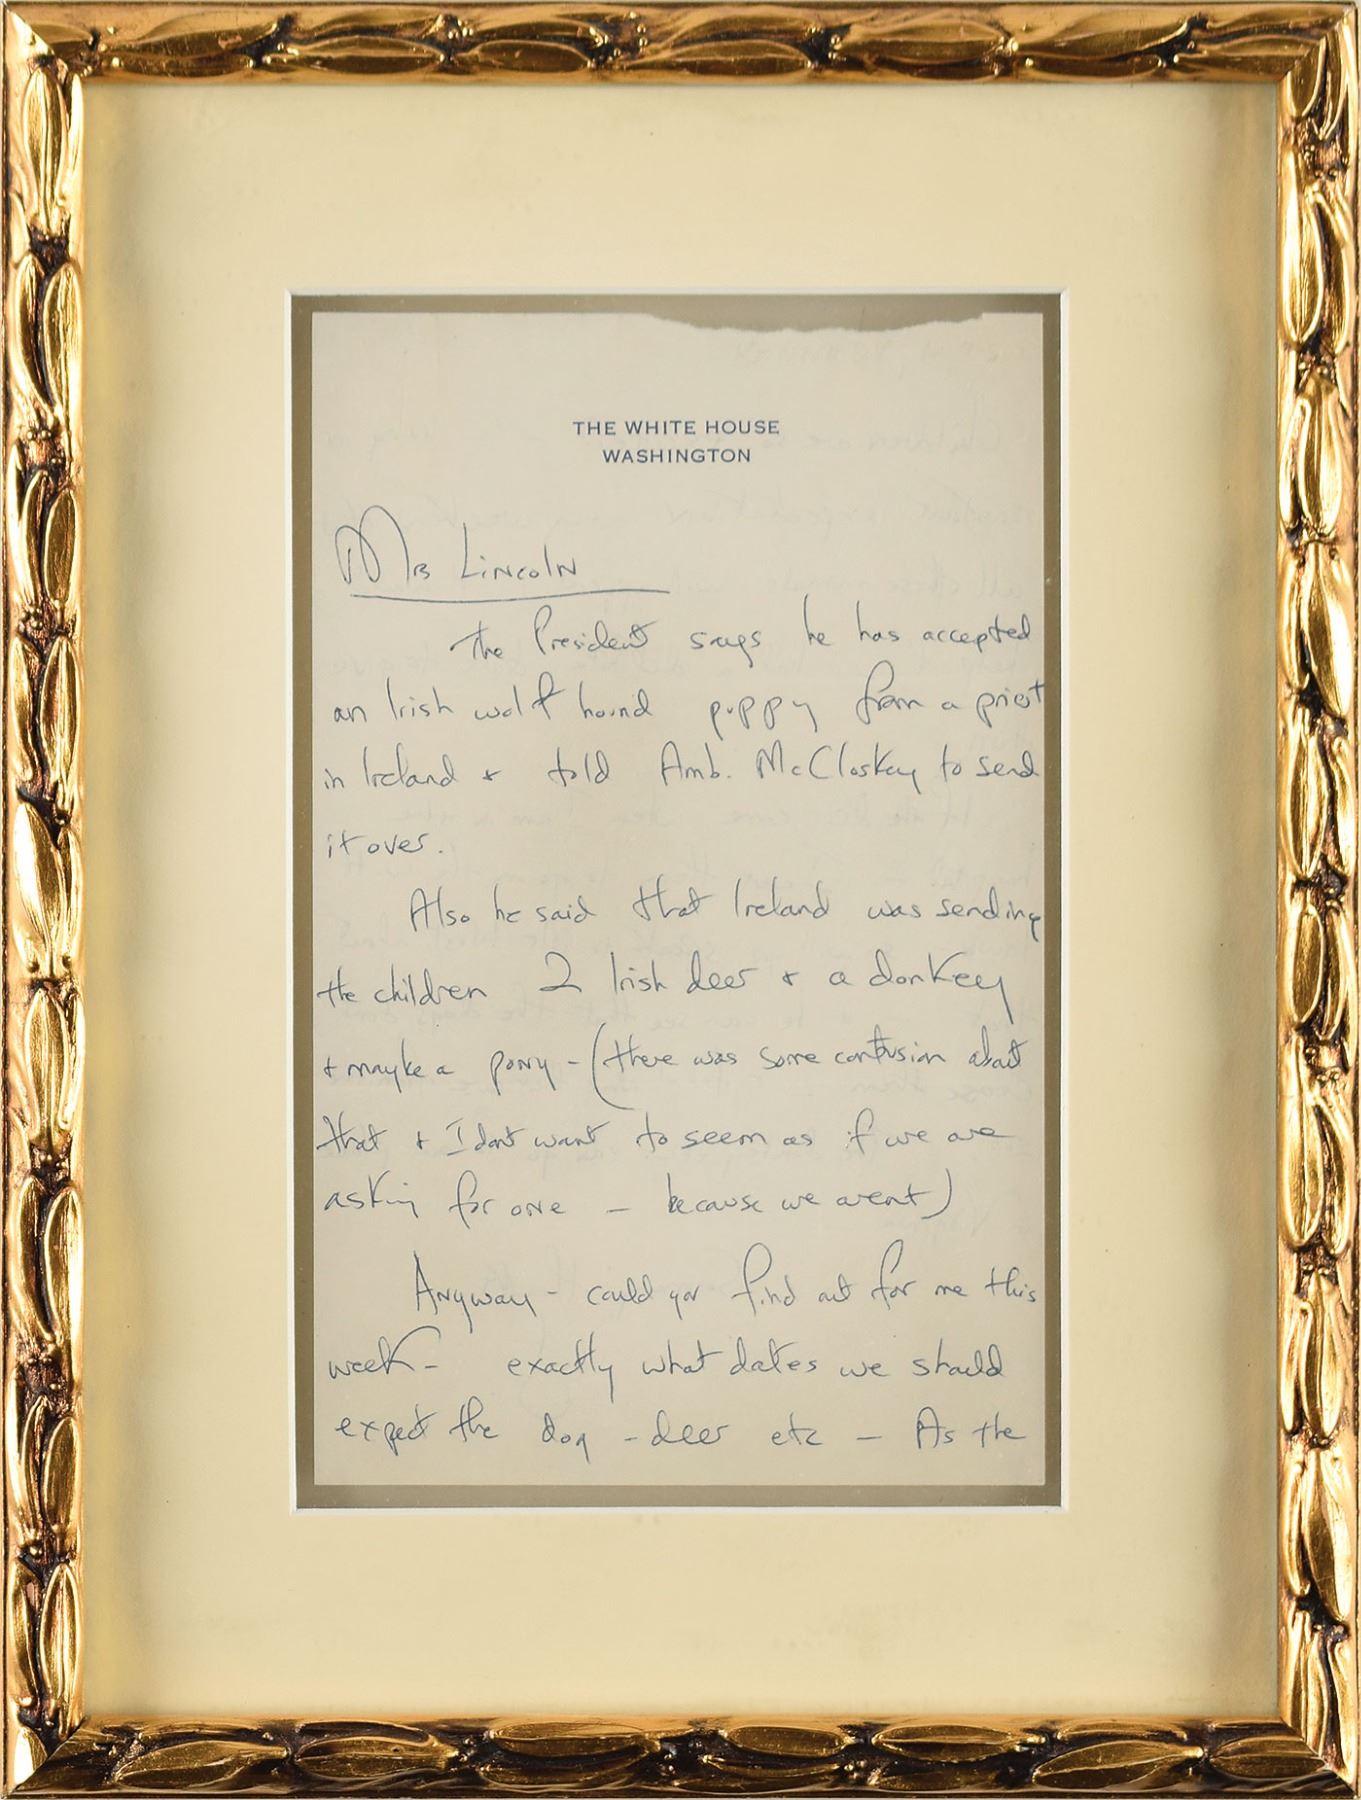 THE WHITE HOUSE
WASHINGTON
Mrs Lincoln
The President says he has accepted
an Irish wolf hound puppy from a priest
in Ireland + told Amb. McCloskey to send
it over.
Also he said that Ireland was sending
the children 2 Irish deer + a donkey
+ maybe a pony - (there was some confusion about
that + I dont want to seem as if we are
asking for one - because we arent)
Anyway - could you find out for me this
week - exactly what dates we should
expect the dog - deer etc - As the